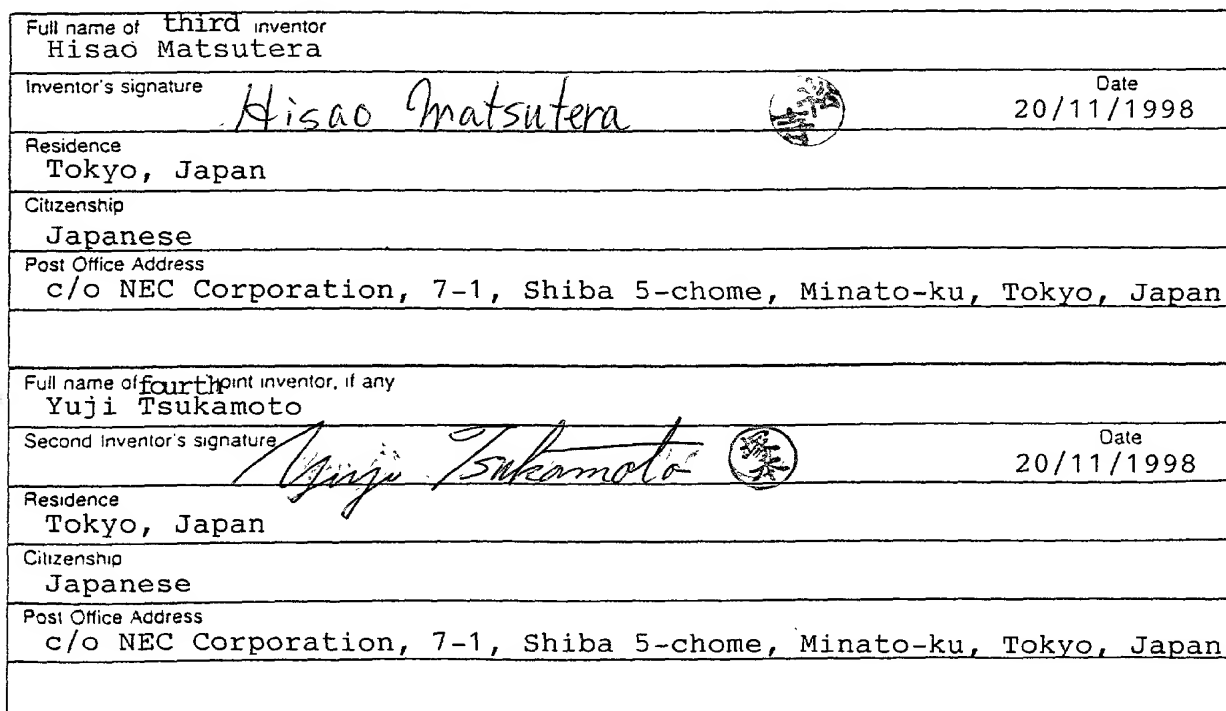 Full name of third inventor
Hisao Matsutera
Inventor's signature Hisao Matsutera Date
20/11/1998
Residence
Tokyo, Japan
Citizenship
Japanese
Post Office Address
c/o NEC Corporation, 7-1, Shiba 5-chome, Minato-ku, Tokyo, Japan
Full name of fourth joint inventor, if any
Yuji Tsukamoto
Second Inventor's signature Yuji Tsukamoto 塚本 Date
20/11/1998
Residence
Tokyo, Japan
Citizenship
Japanese
Post Office Address
c/o NEC Corporation, 7-1, Shiba 5-chome, Minato-ku, Tokyo, Japan